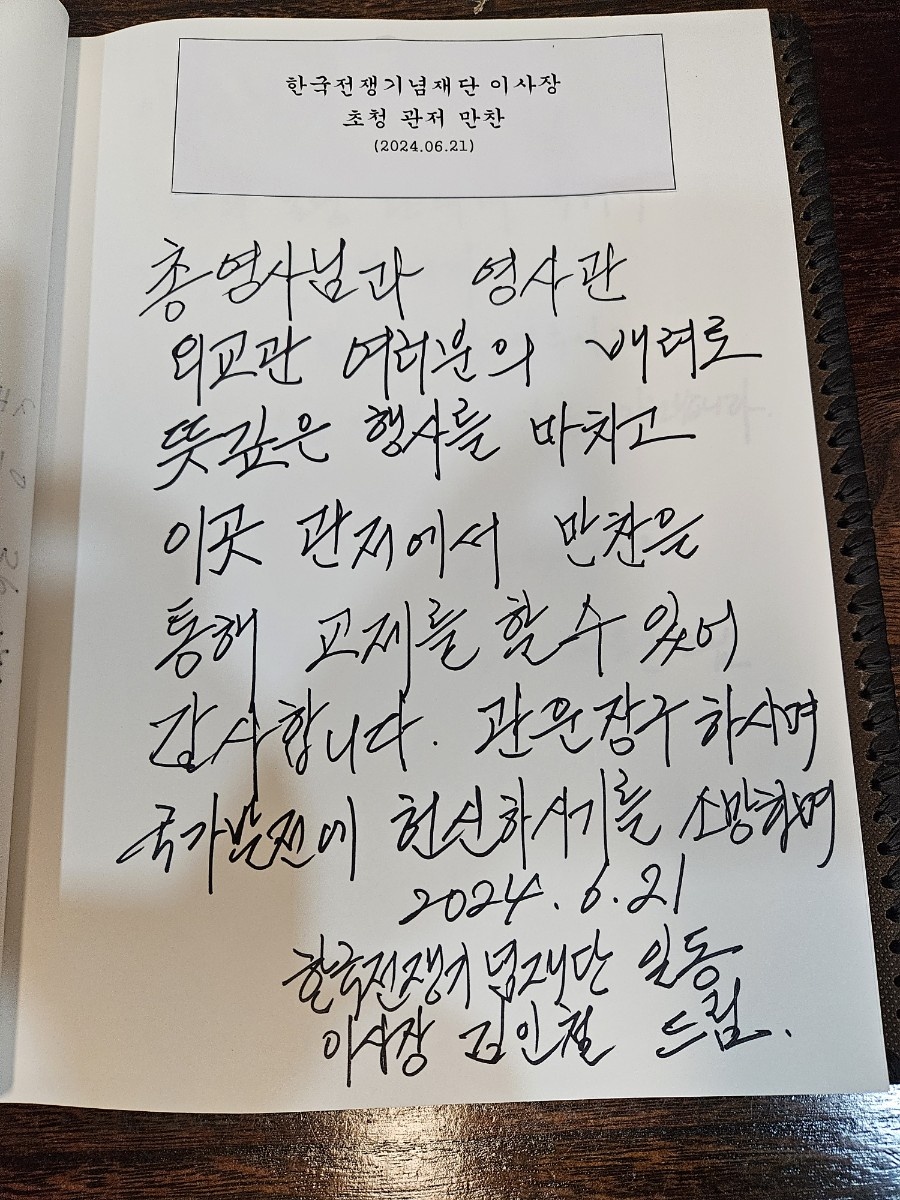 한국전쟁기념재단 이사장
초청 관저 만찬
(2024.06.21)
총영사님과 영사관
외교관 여러분의 배려로
뜻깊은 행사를 마치고
이곳 관저에서 만찬을
통해 교제를 할 수 있어
감사합니다. 관운장구 하시며
국가발전에 헌신하시기를 소망하며
2024. 6. 21
한국전쟁기념재단 일동
이사장 김인철 드림.